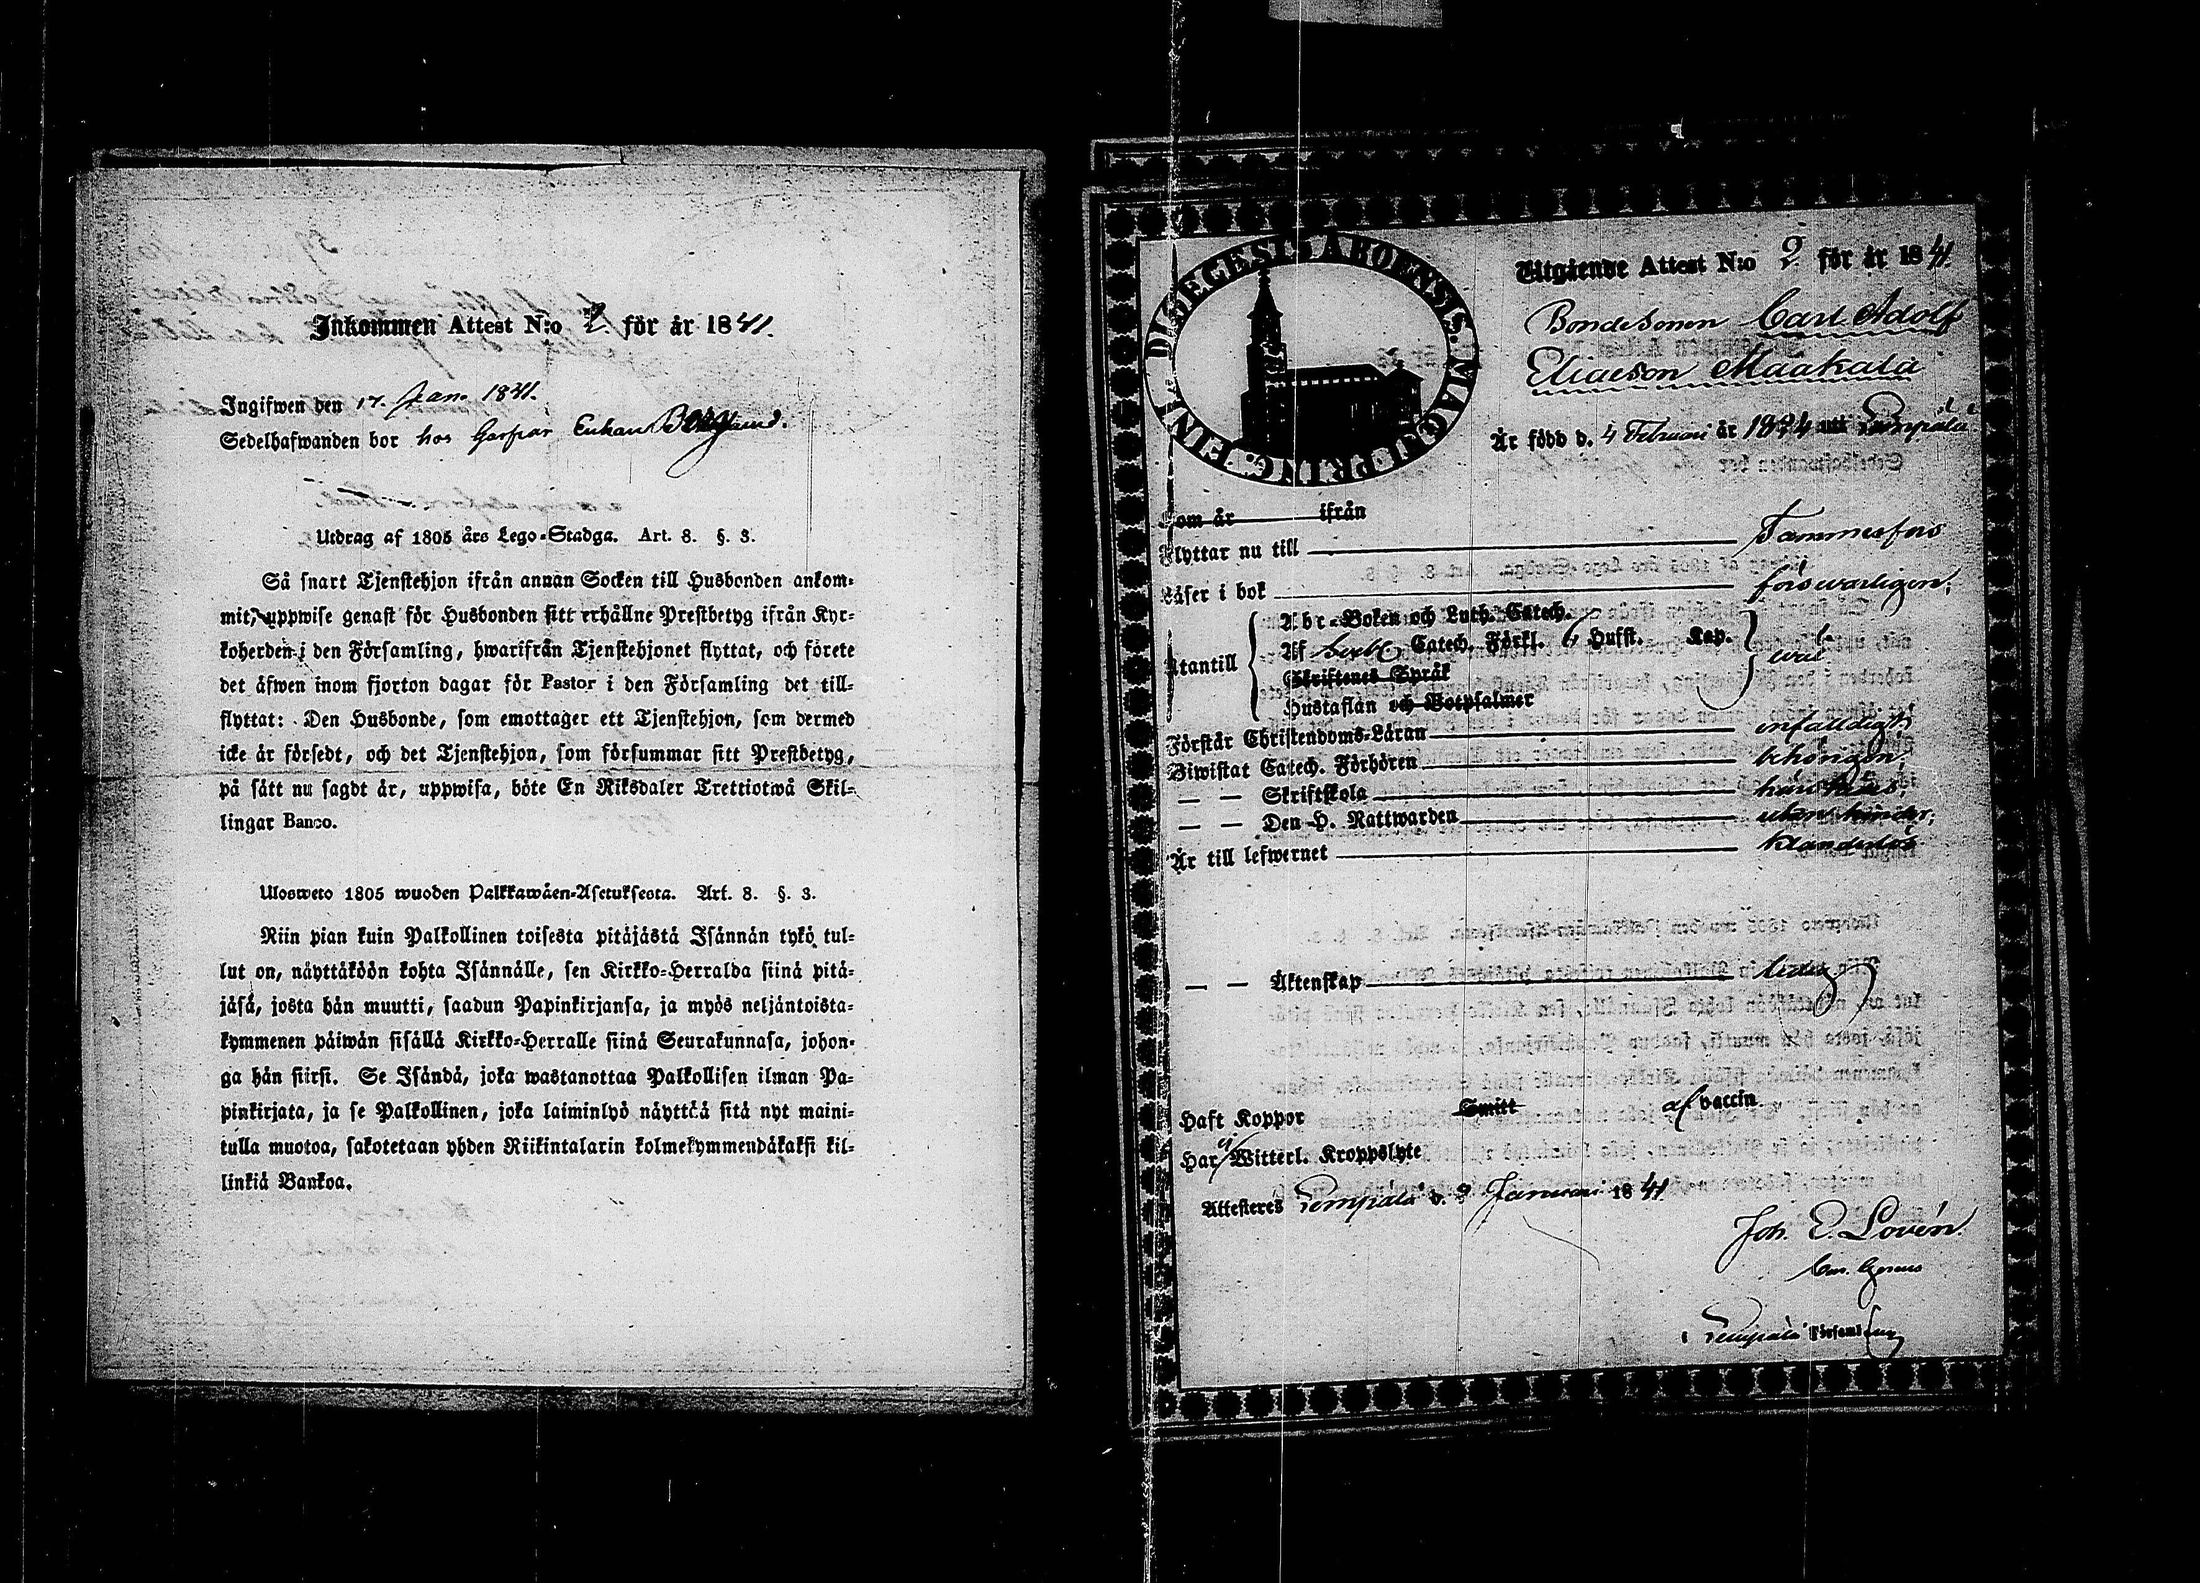 Inkommen Attest N:o 2 för år 1841.
Ingifwen den 17. Jan. 1841.
Sedelhafwanden bor hos Gaspar Enkan Berglund.
Utdrag af 1805 års Lego-Stadga. Art. 8. §. 3.
Så snart Tjenstehjon ifrån annan Socken till Husbonden ankom-
mit, uppwise genast för Husbonden sitt erhållne Prestbetyg ifrån Kyr-
koherden i den Församling, hwarifrån Tjenstehjonet flyttat, och förete
det äfwen inom fjorton dagar för Pastor i den Församling det till-
flyttat: Den Husbonde, som emottager ett Tjenstehjon, som dermed
icke är försedt, och det Tjenstehjon, som försummar sitt Prestbetyg,
på sätt nu sagdt är, uppwisa, böte En Riksdaler Trettiotwå Skil-
lingar Banco.
Ulosweto 1805 wuoden Palkkawäen-Asetuksesta. Art. 8. §. 3.
Niin pian kuin Palkollinen toisesta pitäjästä Isännän tykö tul-
lut on, näyttäköön kohta Isännälle, sen Kirkko-Herralda siinä pitä-
jäsä, josta hän muutti, saadun Papinkirjansa, ja myös neljäntoista-
kymmenen päiwän sisällä Kirkko-Herralle siinä Seurakunnasa, johon-
ga hän siirsi. Se Isändä, joka wastanottaa Palkollisen ilman Pa-
pinkirjata, ja se Palkollinen, joka laiminlyö näyttää sitä nyt maini-
tulla muotoa, sakotetaan yhden Riikintalarin kolmekymmendäkaksi kil-
linkiä Bankoa.
DIŒCESIS ABOENSIS. MAGNI PRINC. FINL.
Utgående Attest N:o 2 för år 1841.
Bondesonen Carl Adolf
Eliaeson Maakala
Är född d. 4 Februari år 1824 uti Lempäälä
Kom år ifrån
Flyttar nu till Tammerfors
Läser i bok förswarligen;
Utantill
Abc-Boken och Luth. Catech.
Af Catech. Förkl. 6 Hufst. Kap. wäl
Skriftenes Språk
Hustaflan och Botpsalmer
Förstår Christendoms-Läran enfaldigt;
Biwistat Catech. Förhören behörigen;
— — Skriftskola
— — Den H. Nattwarden utan hinder;
Är till lefwernet klanderlös
— — Äktenskap ledig
Haft Koppor Smitt af vaccin
Har ej Witterl. Kroppslyte
Attesteres Lempälä d. 9 Januari 1841
Joh. E. Lovén.
i Lempälä Församling